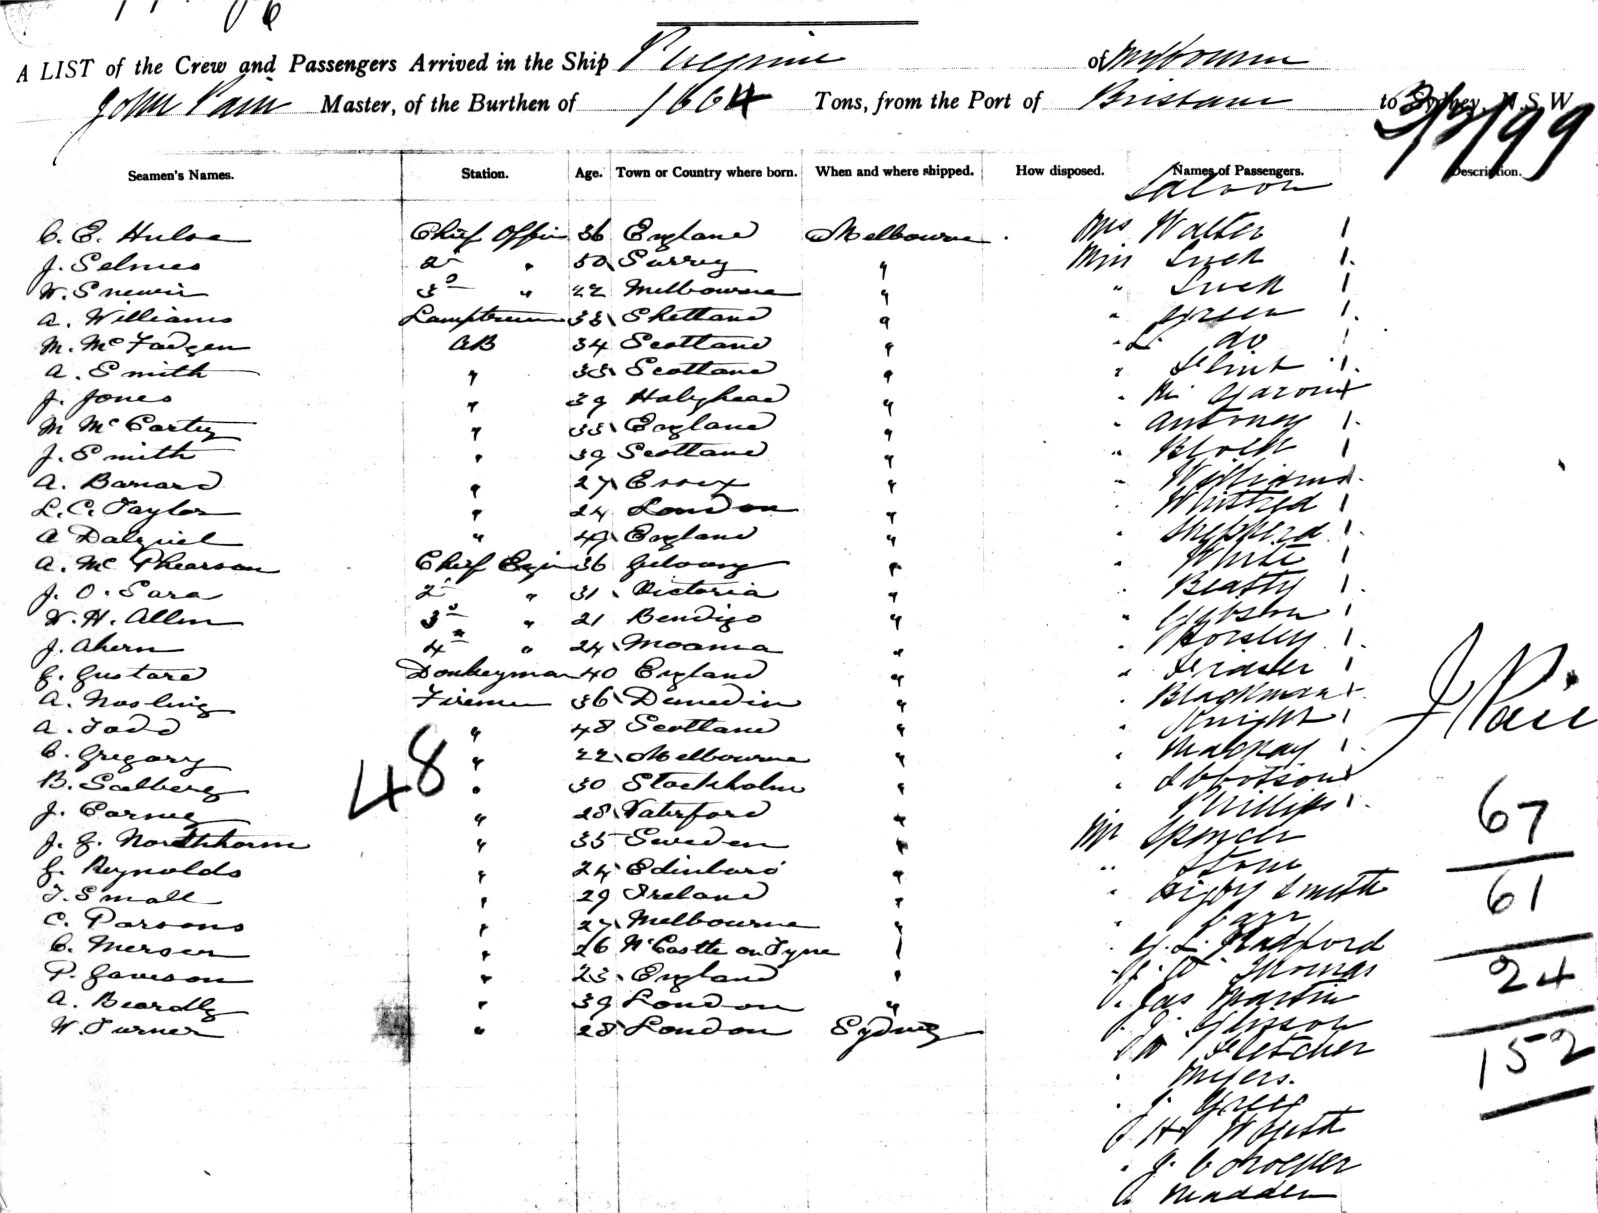 A LIST of the Crew and Passengers Arrived in the Ship Peregrine of Melbourne
John Pain Master, of the Burthen of 1664 Tons, from the Port of Brisbane to Sydney, N.S.W.
3/2/99
Seamen's Names. Station. Age. Town or Country where born. When and where shipped. How disposed. Names of Passengers. Description.
Saloon
C. E. Hulse Chief Offir 36 England Melbourne
J. Selmes 2nd " 50 Surrey "
W. 3rd " 22 Melbourne "
A. Williams Lamptrimmer 33 Shetland "
M. McFadgen AB 34 Scotland "
A. Smith " 33 Scotland "
J. Jones " 39 Holyhead "
M McCarty " 35 England "
J. Smith " 39 Scotland "
A. Barnard " 27 Essex "
L. C. Taylor " 24 London "
A Dalziel " 49 England "
A. McPhearson Chief Engin 36 "
J. O. Sara 2 " 31 Victoria "
W. H. Allen 3rd " 21 Bendigo "
J. Ahern 4th " 24 Moama "
G. Gustard Donkeyman 40 England "
A. Nosling Firemen 36 Dunedin "
A. Todd " 48 Scotland "
C. Gregory " 22 Melbourne "
B. Salberg " 30 Stockholm "
J. Carney " 28 Waterford "
J. G. Northhorm " 35 Sweden "
G. Reynolds " 24 Edinburo "
T. Small " 29 Ireland "
C. Parsons " 27 Melbourne "
C. Merser " 26 N'Castle on Tyne
P. Jameson " 23 England "
A. Beardly " 39 London "
W. Turner " 28 London Sydney
48
Mrs Walter 1
Miss Luck 1
" Luck 1
" Green 1
" L. do 1
" Flint 1
"
" Antoney 1
" Block 1
" Williams
" Whitfred 1
" Shepherd 1
" White 1
" Beatty 1
" Gibson 1
" Horsley 1
"
" Blackman
" Knight 1
" Mackay 1
" Ibbotson
" Phillips 1
Mr Spencer
" Stone
" Digby Smith
" Carr
" G. L. Radford
" Thomas
" Jas Martin
" J. Gibson
" W Fletcher
" Myers.
" J. Greig
" H
" J. C
" Madden
J Pain
67
61
24
152